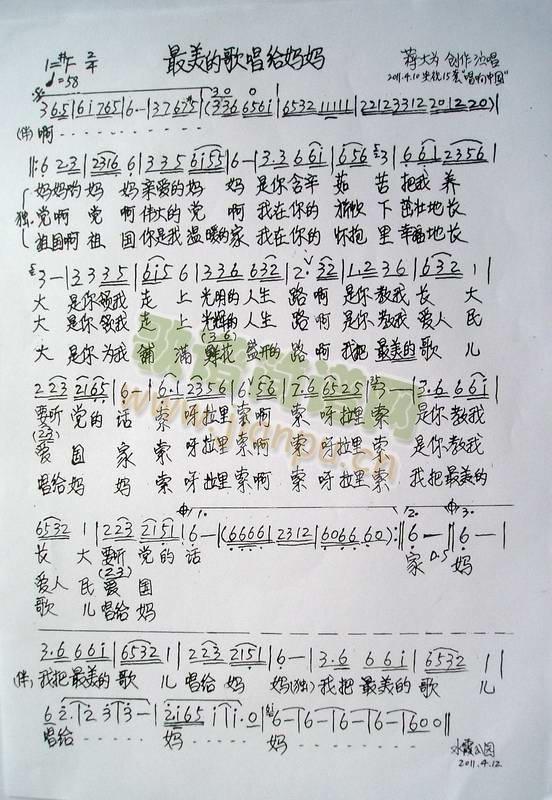 最美的歌唱给妈妈
1=#F 2/4
♩=58
蒋大为 创作演唱
2011.4.10央视15套"唱响中国"
3 6 5 | 6 i 7 6 5 | 6 — | 3 7 6 7 5 | (3 3 6 6 5 6 i | 6 5 3 2 1 1 1 1 1 | 2 2 1 2 3 3 2 1 2 0 1 2 2 0)
(伴) 啊
||: 6 2 3 | 2 3 1 6 6 | 3 3 5 6 i 5 5 | 6 — | 3. 3 6 6 i | 6 5 6 3 | 6 6 i 2 3 5 6
妈妈哟 妈 妈 亲爱的 妈 妈 是你含辛 茹 苦 把我 养
独. 党啊 党 啊 伟大的 党 啊 我在你的 旗帜 下 茁壮地长
祖国啊 祖 国 你是我 温暖的 家 我在你的 怀抱 里 幸福地长
3 — | 3 3 3 5 | 6 i 5 6 | 3 3 6 6 3 2 | 2. 3 2 | 1. 2 3 6 | 6 3 2 1 |
大 是你领我 走 上 光明的人生 路啊 是你教我 长 大
大 是你领我 走 上 光辉的人生 路啊 是你为我 爱人 民
(3 6)
大 是你为我 铺 满 鲜花 盛开的 路啊 我把 最美的 歌 儿
2 2 3 2 1 6 5 | 6 — | 6. 1 2 3 5 6 | 6. 5 6 | 7. 6 6 5 2 5 | 3 — | 3. 6 6 6 i |
要听 党的 话 索 呀拉里索啊 索 呀拉里 索 是你教我
(2 3)
爱 国 家 索 呀拉里索啊 索 呀拉里 索 是你教我
唱给 妈 妈 索 呀拉里索啊 索 呀拉里 索 我把最美的
1. 2. 3.
6 5 3 2 1 | 2 2 3 2 1 5 1 | 6 — | (6 6 6 6 | 2 3 1 2 | 6 0 6 6 6 0) :|| 6 — || 6 — |
长 大 要听 党的 话 家 D.S 妈
(2 3)
爱人 民 爱 国
歌 儿 唱给 妈
3. 6 6 6 i | 6 5 3 2 1 | 2 2 3 2 1 5 1 | 6 — | 3. 6 6 6 i | 6 5 3 2 1 |
(伴) 我把 最美的 歌 儿 唱给 妈 妈(独) 我把 最美的 歌 儿
6 2. | 2 3 3 — | 2 i 6 5 i | i. 0 | 6 — | 6 — | 6 — | 6 — | 6 0 0 ||
唱给 妈 妈
水霞公园
2011.4.12
www.jianpu.cn